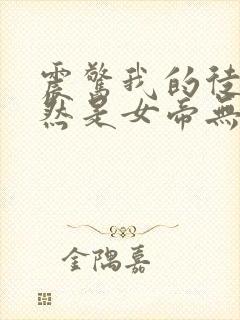 震驚我的徒
然是女帝無
金隅嘉